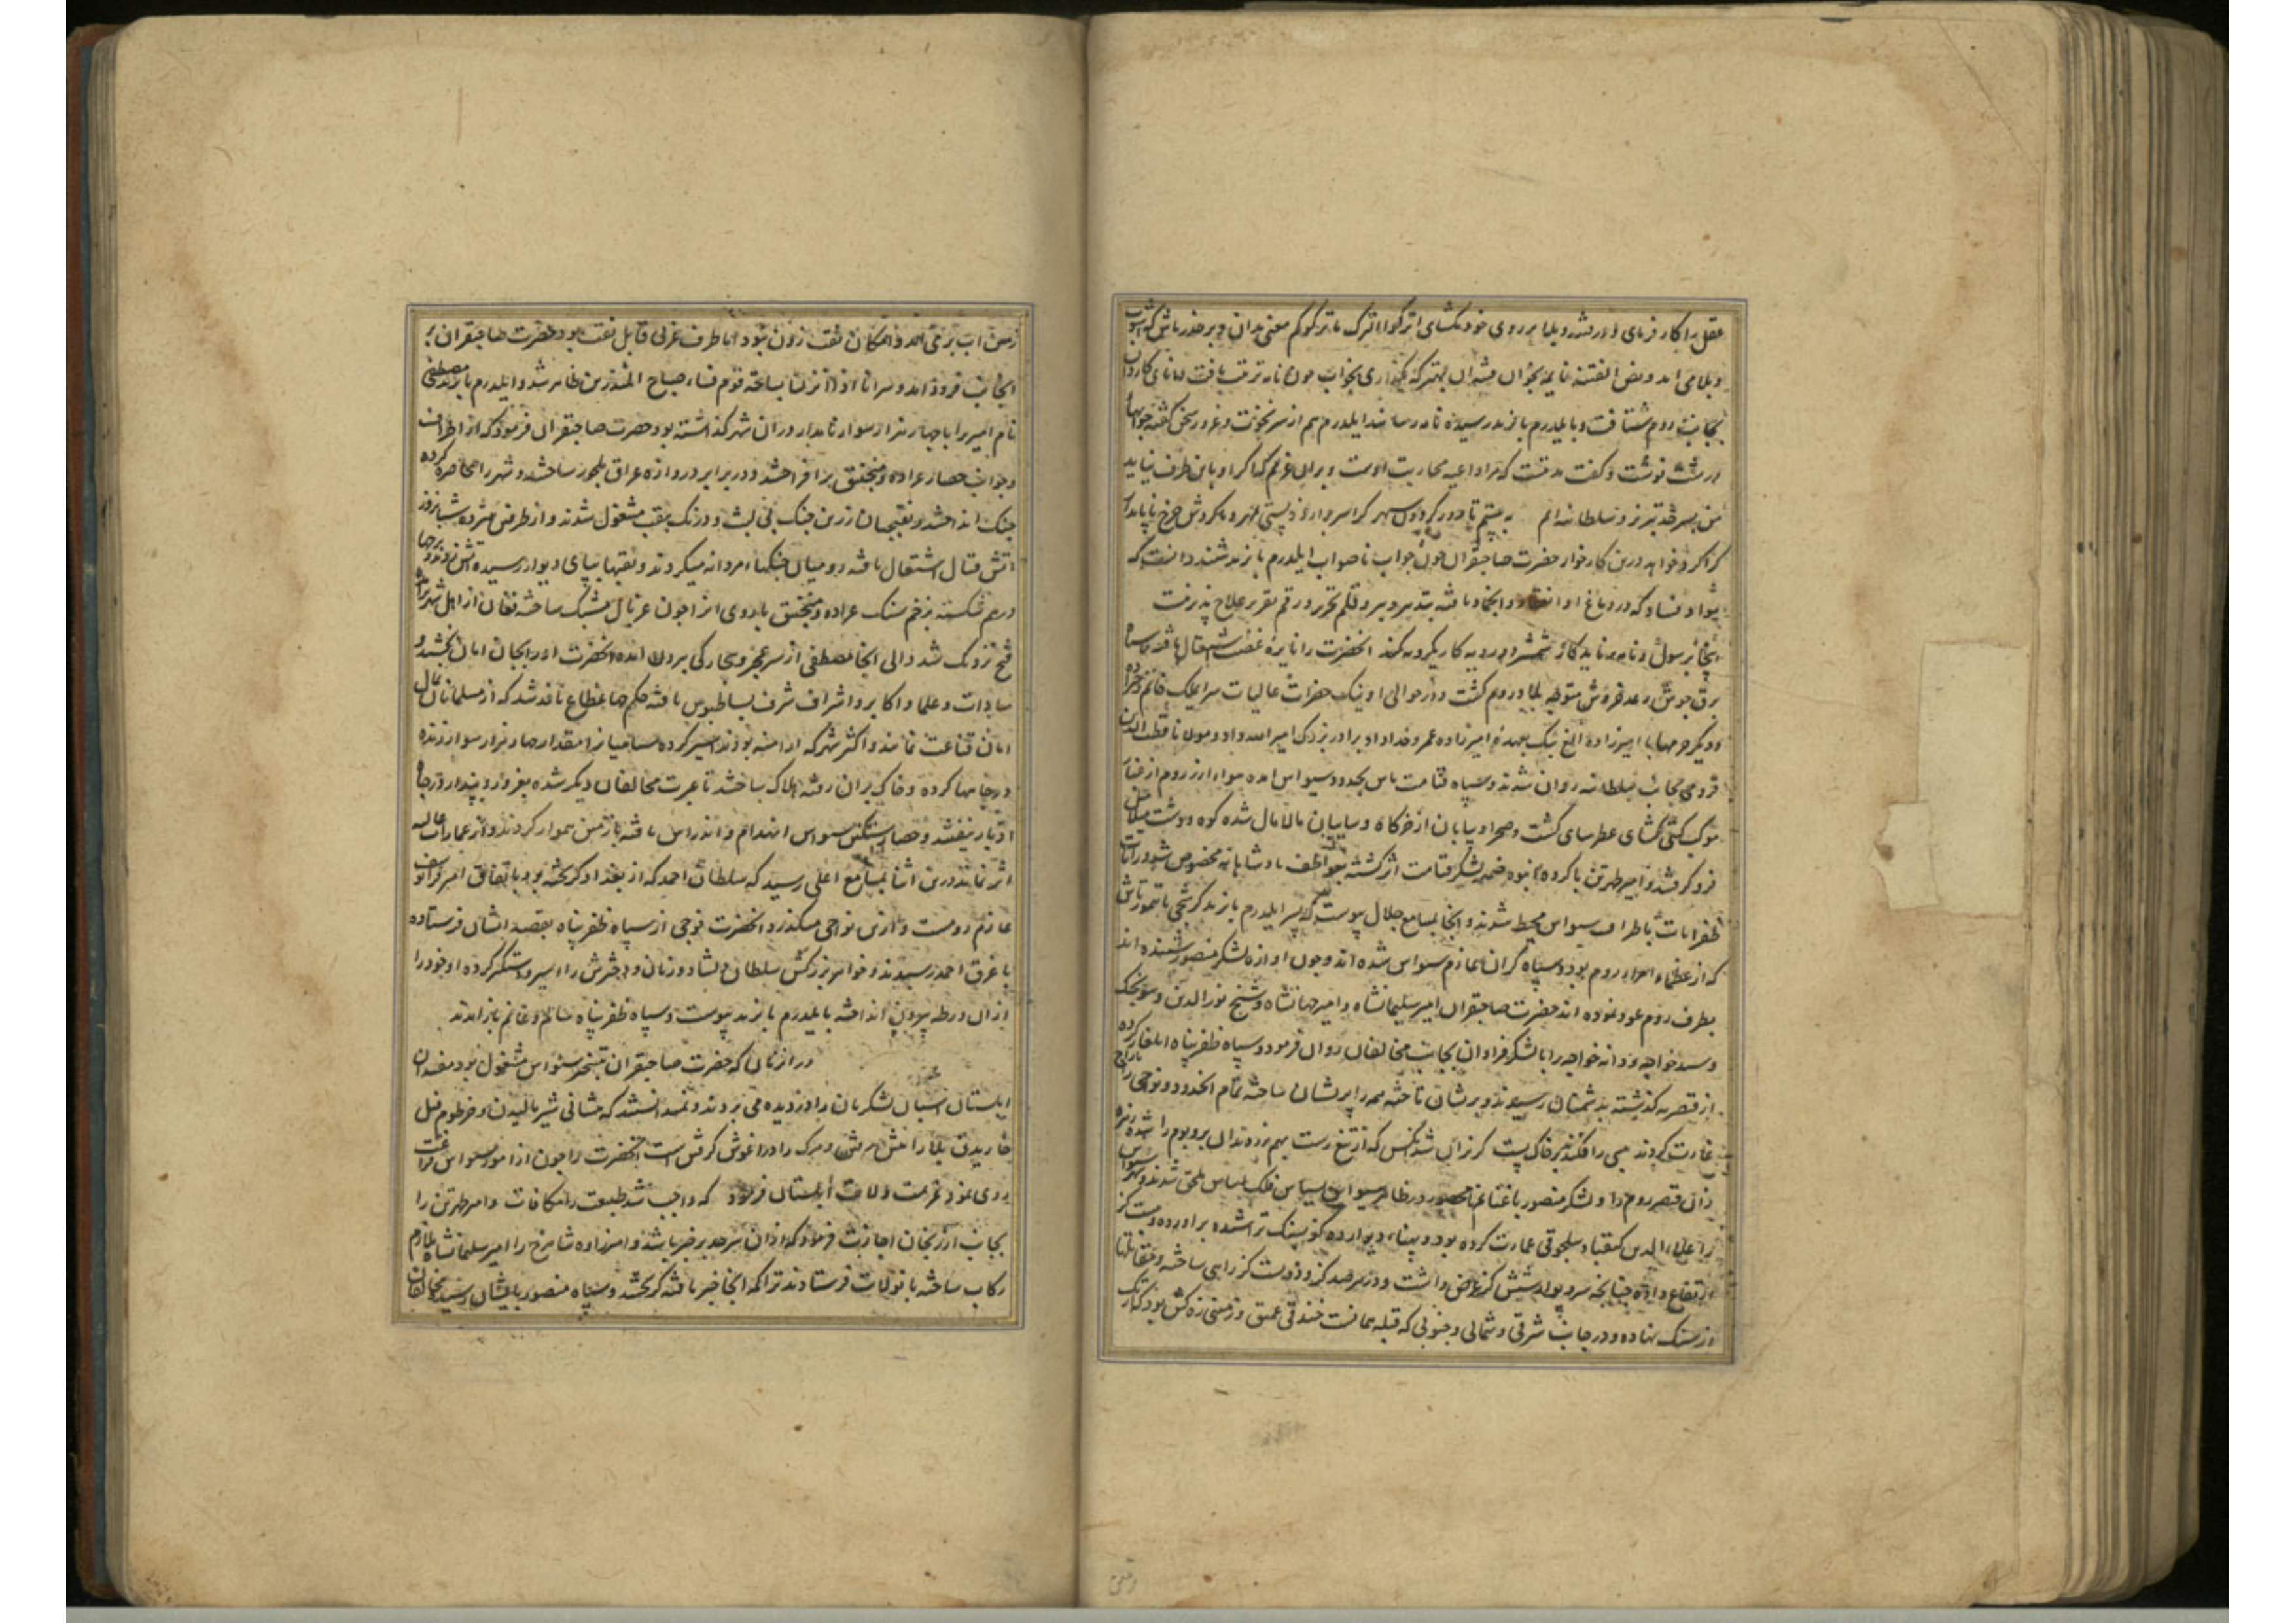 عقل را کار فرمای و در فتنه و بلا بر روی خود مکشای اترکوا الترک ما ترکوکم معنی بدان و بر حذر باش که آشوب
و بلا می آید و بعض الفتنة نایمه بخوان فتنه آن بهتر که نگذاری بخواب چون نامه ترتیب یافت دانای کاردان
بجانب روم شتافت و با یلدرم بایزید رسیده نامه رسانید ایلدرم هم از سر نخوت و غرور سخن گفته جوابهاء
درشت نوشت و گفت مدتیست که مرا داعیه محاربت اوست و بر آن عزم که اگر او باین طرف نیاید
من بسر حد تبریز و سلطانیه آیم به بینیم تا دور کردون سپهر کرا سر در آرد ز پستی بمهر و گردش چرخ ناپایدار
کرا کرد خواهد درین کار خوار حضرت صاحبقران چون جواب ناصواب ایلدرم بایزید شنید دانست که
مواد فساد که در دماغ او انعقاد و انجماد یافته بتدبیر دبیر و قلم تحریر و رقم تقریر علاج پذیر نیست
آنجا که رسول و نامه بر ناید کار شمشیر دو رویه کار یکرویه کند آنحضرت را نایره غضب اشتعال یافته با سپاه
برق جوش رعد خروش متوجه بلاد روم گشت و در حوالی اونیک حضرات عالیات سرای ملک خانم
و دیگر حرمها با امیرزاده الغ بیک بعهده امیرزاده عمر و خداداد برادر بزرگ امیر الله داد و مولانا قطب الدین
قرومی بجانب سلطانیه روان شدند و سپاه قیامت باس بحدود سیواس آمده هوای ارز روم از غبار
موکب کیتی کشای عطر سای گشت و صحرا و بیابان از خرگاه و سایبان مالامال شده کوه و دشت
فرو گرفتند و امیر طهرتن با گروه انبوه ضمیمه لشکر قیامت اثر گشته بعواطف پادشاهانه مخصوص شد و رایات
ظفرایات باطراف سیواس محیط شدند و آنجا بمسامع جلال پیوست که پسر ایلدرم بایزید کرشجی با تیمورتاش
که از عظماء امراء روم بود و سپاه گران عازم سیواس شده اند و چون آوازه لشکر منصور شنیده اند
بطرف روم عود نموده اند حضرت صاحبقران امیر سلیمانشاه و امیر جهانشاه و شیخ نورالدین و سونجک
و سید خواجه و دانه خواجه را با لشکر فراوان بجانب مخالفان روان فرمود و سپاه ظفرپناه ایلغار کرده
از قیصریه گذشته بدشمنان رسیدند و بریشان تاخته همه را پریشان ساخته تمام آنحدود و نواحی را تاراج
غارت کردند همی را فکندند بر خاک پست گریزان شد آنکس که از تیغ رست بهم برزده آن بر و بوم را شده
زان قیصر روم را و لشکر منصور با غنایم نامحصور در ظاهر سیواس بسپاس فلک اساس ملحق شدند و شهر سیواس
را علاء الدین کیقباد سلجوقی عمارت کرده بود و پهناء دیوار ده گز بسنگ تراشیده برآورده و بیست گز
ارتفاع داده چنانچه سر دیوار شش گز عرض داشت و در هر صد گز و دویست گز راهی ساخته و
از سنگ نهاده و در جانب شرقی و شمالی و جنوبی که قبله مسافت خندقی عمیق و زمینی زه کش بود که
زمین آب برمی آمد و امکان نقب زدن نبود اما طرف غربی قابل نقب بود حضرت صاحبقران
آنجانب فرود آمد و سر انا اذا نزلنا بساحة قوم فساء صباح المنذرین ظاهر شد و ایلدرم بایزید مصطفی
نام امیر را با چهار هزار سوار نامدار در آن شهر گذاشته بود حضرت صاحبقران فرمود که از اطراف
و جوانب حصار عراده و منجنیق برافراختند و در برابر دروازه عراق ملجور ساختند و شهر را محاصره کرده
جنک انداختند و نقبچیان زرین چنگ بی لبث و درنگ بنقب مشغول شدند و از طرفین هژده شبانروز
آتش قتال اشتعال یافته بود میان جنگها مردانه میکردند و نقبها بپای دیوار رسیده آتش زدند و برجها
درهم شکسته بزخم سنگ عراده و منجنیق باروی آنرا چون غربال مشبک ساخته فغان از اهل شهر
فتح نزدیک شد والی آنجا مصطفی از سر عجز و بیچارگی بیرون آمده آنحضرت او را بجان امان بخشید و
سادات و علما و اکابر و اشراف شرف بساط بوس یافته حکم جهانمطاع نافذ شد که از مسلمانان بمال
امان قناعت نمایند و اکثر شهر که ارامنه بودند اسیر کرده سپاهیان را مقدار چهار هزار سوار زنده
در چاهها کرده و خاک بر آن ریخته هلاک ساختند تا عبرت مخالفان دیگر شده بغرور و پندار در چاه
ادبار نیفتند و حصار سنگین سیواس انهدام و اندراس یافته با زمین هموار کردند و از عمارات عالیه
اثر نماند درین اثنا بمسامع اعلی رسید که سلطان احمد که از بغداد گریخته بود باتفاق امیر قرا یوسف
عازم رومست و ازین نواحی میگذرد آنحضرت فوجی از سپاه ظفرپناه بقصد ایشان فرستاده
با غرق احمد رسیدند و خواهر بزرگش سلطان دلشاد و زنان و دخترش را اسیر و دستگیر کرده او خود را
از آن ورطه بیرون انداخته با یلدرم بایزید پیوست و سپاه ظفرپناه سالم و غانم بازآمدند
در آن زمان که حضرت صاحبقران بتسخیر سیواس مشغول بود مفسدان
ابلستان اسبان لشکریان را دزدیده می بردند و نمیدانستند که پیشانی شیر مالیدن و خرطوم پیل
خاریدن بلا را پیش رفتن و مرگ را در آغوش گرفتن است آنحضرت را چون از امور سیواس فراغت
روی نمود عزیمت ولایت ابلستان فرمود که واجب شد طبیعت را مکافات و امیر طهرتن را
بجانب ارزنجان اجازت فرمود که از آن سرحد بر خبر باشد و امیرزاده شاهرخ را امیر سلیمانشاه ملازم
رکاب ساخته با تومانات فرستادند تراکمه آنجا خبر یافته گریختند و سپاه منصور بایشان رسید و مخالفان